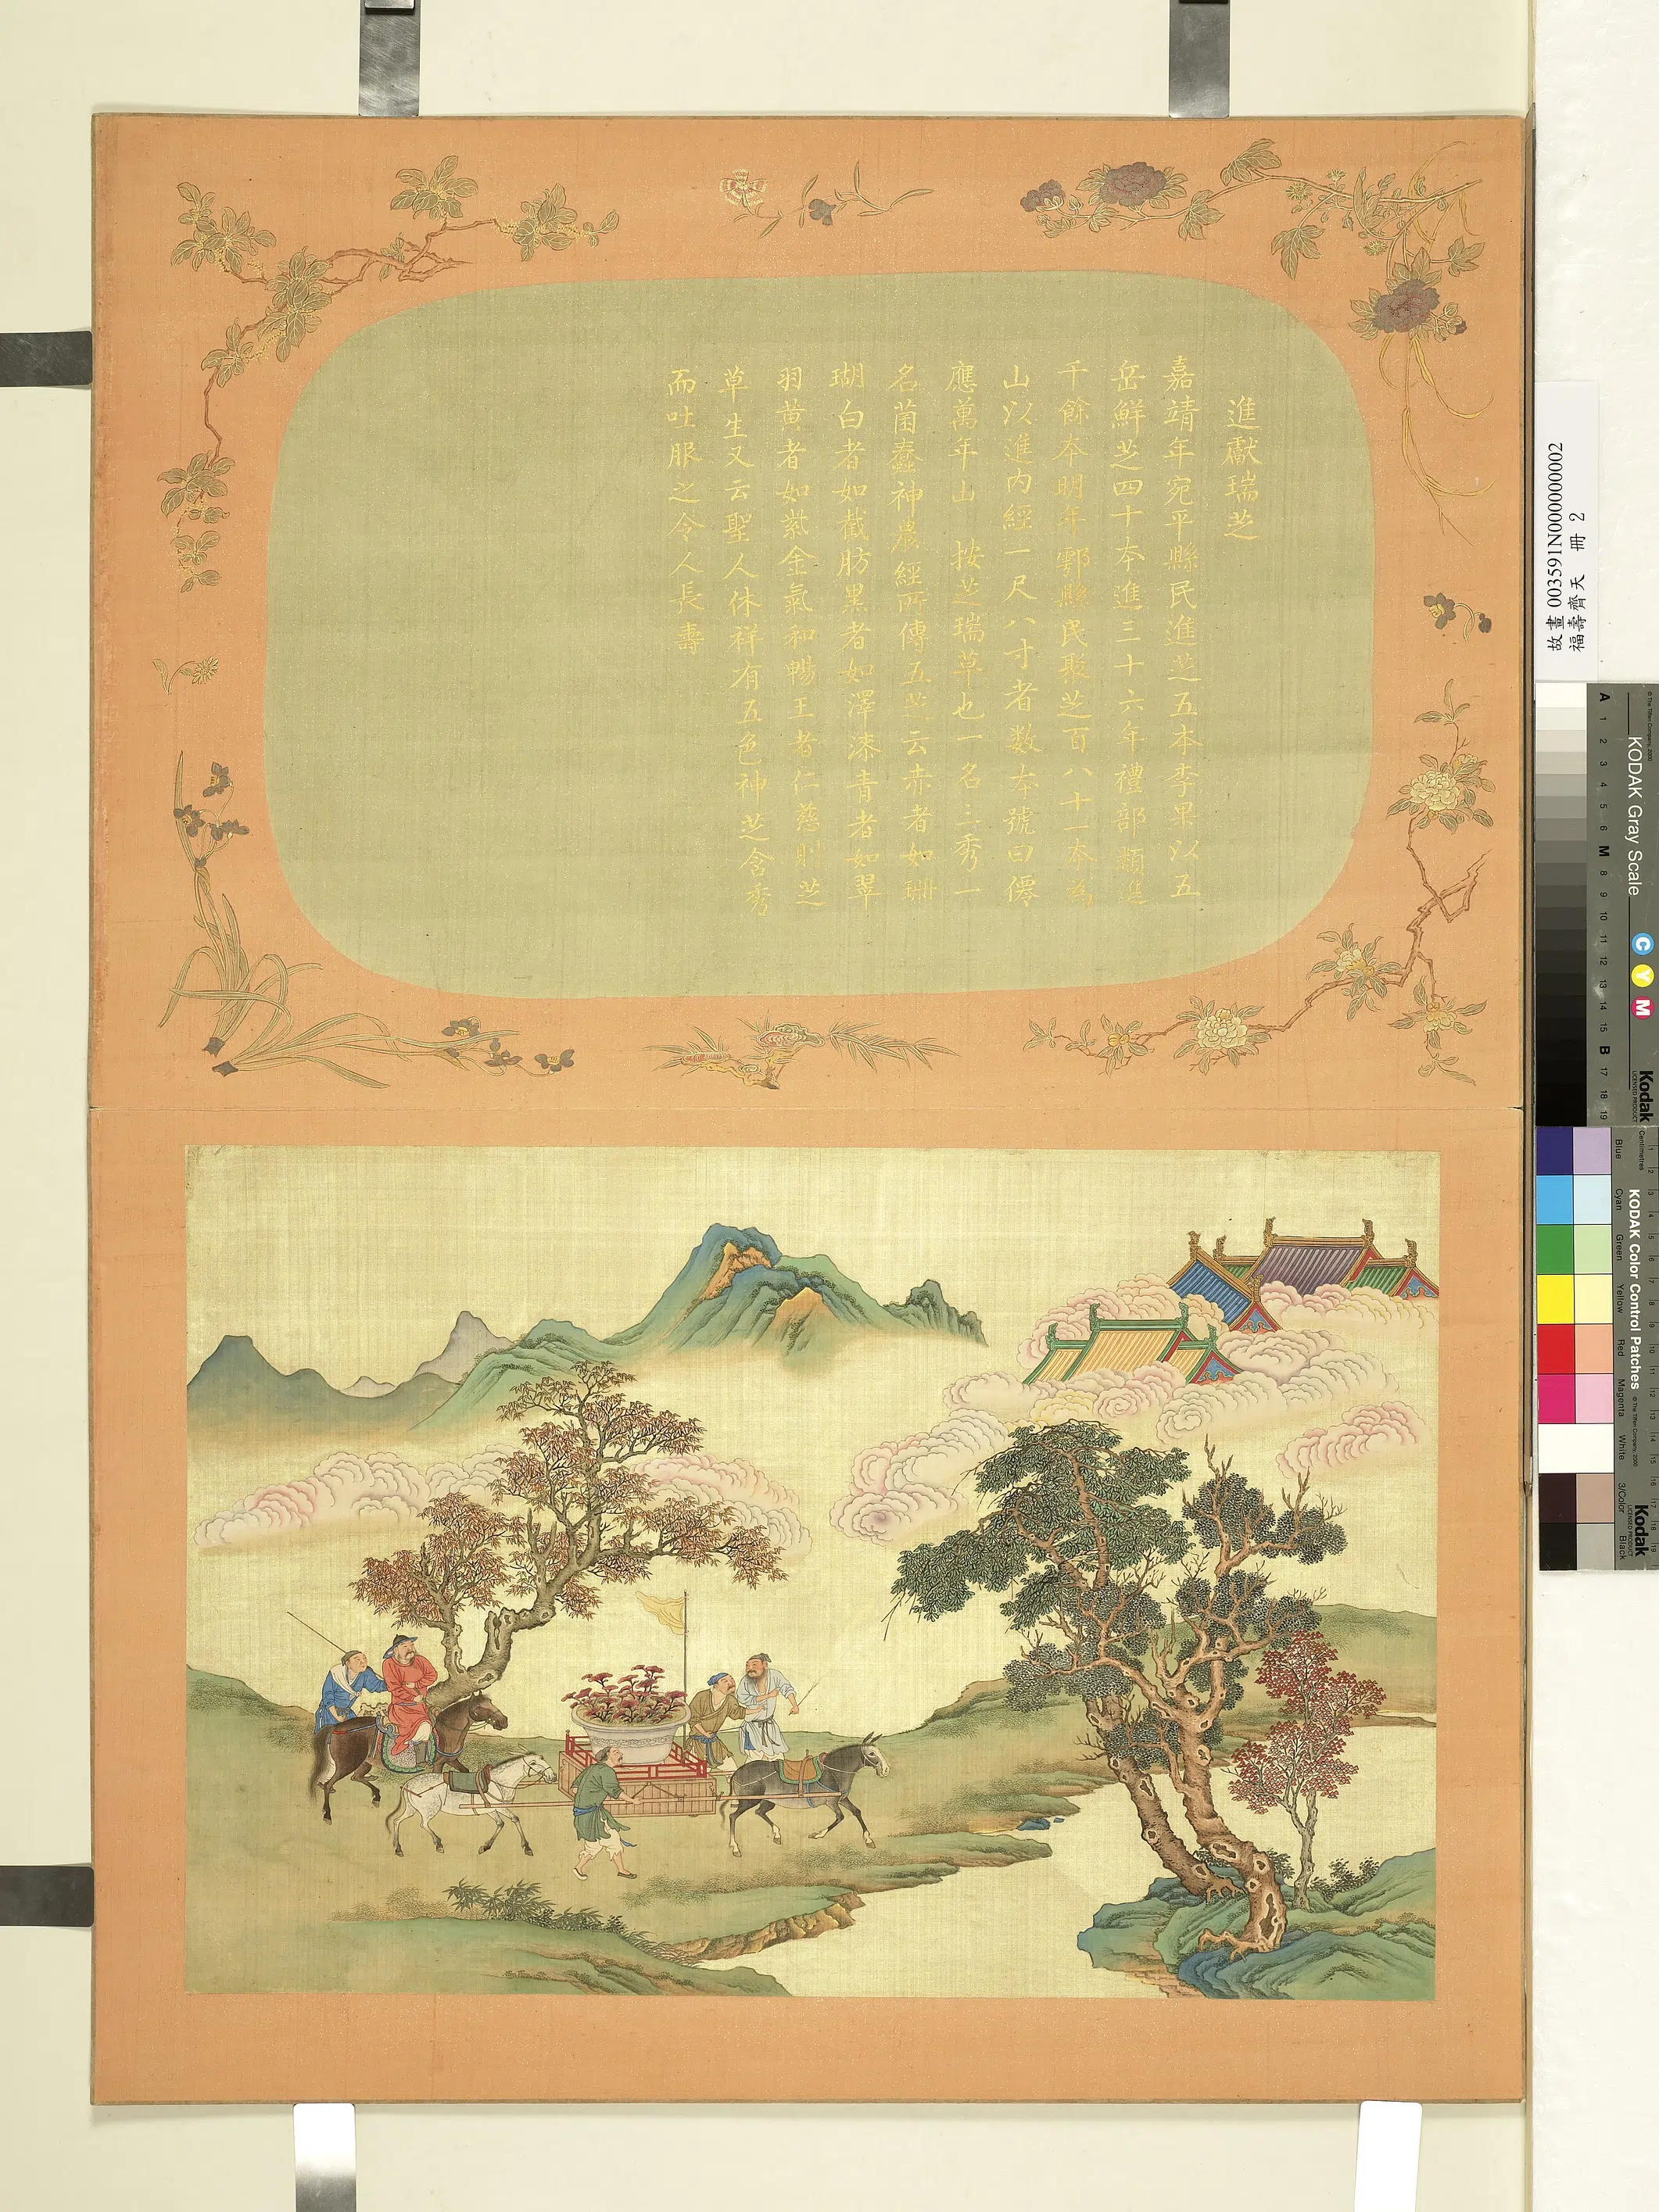 進獻瑞芝
嘉靖年宛平縣民進芝五本李果以五
岳鮮芝四十本進三十六年禮部類進
千餘本明年鄠縣民聚芝百八十一本為
山以進內經一尺八寸者数本號曰僊
應萬年山 按芝瑞草也一名三秀一
名菌蠢神農經所傳五芝云赤者如珊
瑚白者如截肪黑者如澤漆青者如翠
羽黄者如紫金氣和暢王者仁慈則芝
草生又云聖人休祥有五色神芝含秀
而吐服之令人長壽
故畫 003591N000000002
福壽齊天 冊 2
© The Tiffen Company, 2000
KODAK Gray Scale
C Y M
Kodak
LICENSED PRODUCT
A 1 2 3 4 5 6 M 8 9 10 11 12 13 14 15 B 17 18 19
KODAK Color Control Patches
© The Tiffen Company, 2000
Kodak
LICENSED PRODUCT
Centimetres
Blue Cyan Green Yellow Red Magenta White 3/Color Black